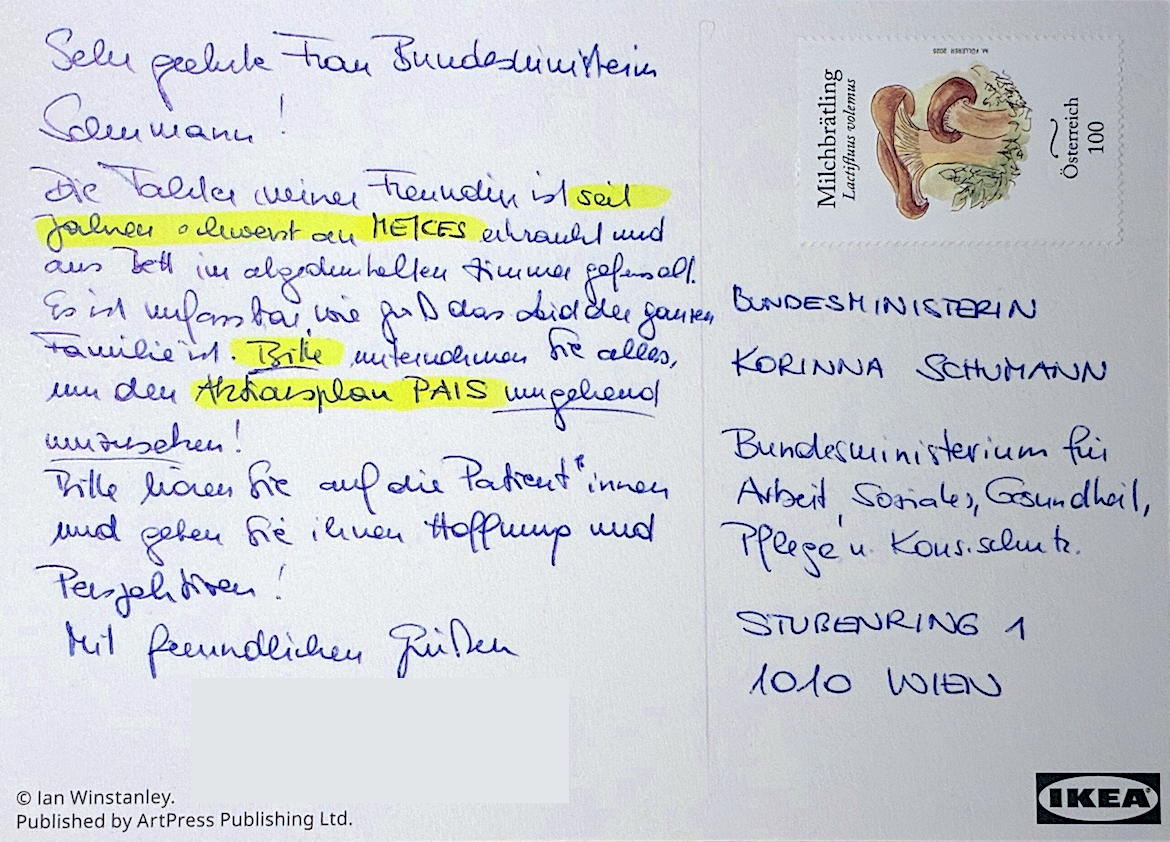 Sehr geehrte Frau Bundesministerin
Schumann!
Die Tochter meiner Freundin ist seit
Jahren schwerst an ME/CFS erkrankt und
ans Bett im abgedunkelten Zimmer gefesselt.
Es ist unfassbar, wie groß das Leid der ganzen
Familie ist. Bitte unternehmen Sie alles,
um den Aktionsplan PAIS umgehend
umzusetzen!
Bitte hören Sie auf die Patient*innen
und geben Sie ihnen Hoffnung und
Perspektiven!
Mit freundlichen Grüßen
© Ian Winstanley.
Published by ArtPress Publishing Ltd.
M. FÜLLERER 2025
Milchbrätling
Lactifluus volemus
Österreich
100
BUNDESMINISTERIN
KORINNA SCHUMANN
Bundesministerium für
Arbeit, Soziales, Gesundheit,
Pflege u. Kons.schutz.
STUBENRING 1
1010 WIEN
IKEA